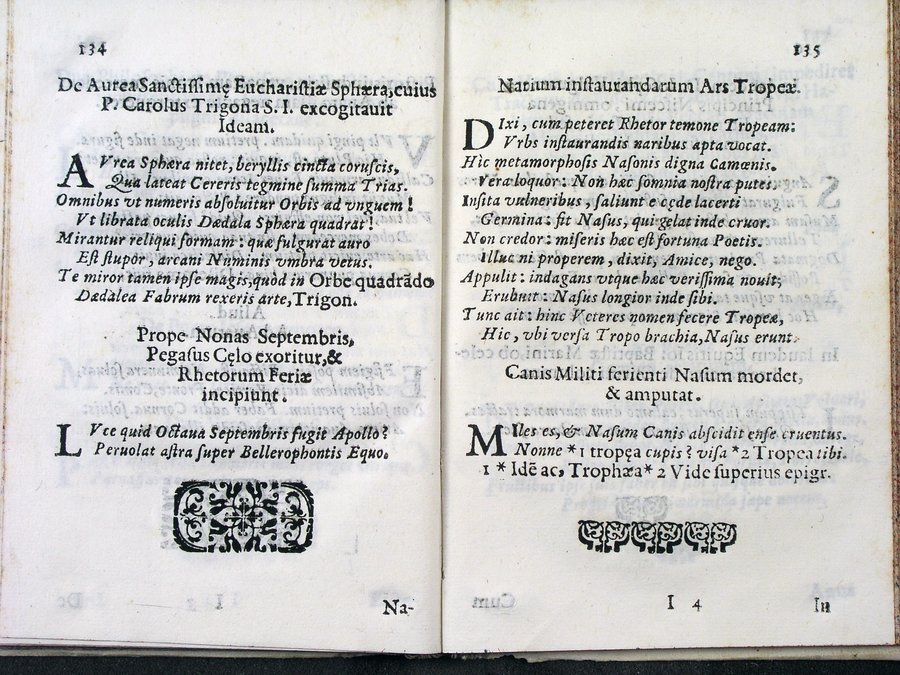 134
De Aurea Sanctissimę Eucharistiæ Sphæra, cuius
P. Carolus Trigona S. I. excogitauit
Ideam.
AVrea Sphæra nitet, beryllis cincta coruscis,
Qua lateat Cereris tegmine summa Trias.
Omnibus vt numeris absoluitur Orbis ad vnguem!
Vt librata oculis Dædala Sphæra quadrat!
Mirantur reliqui formam: quæ fulgurat auro
Est stupor, arcani Numinis vmbra vetus.
Te miror tamen ipse magis, quòd in Orbe quadrādo
Dædalea Fabrum rexeris arte, Trigon.
Prope Nonas Septembris,
Pegasus Cęlo exoritur, &
Rhetorum Feriæ
incipiunt.
LVce quid Octaua Septembris fugit Apollo?
Peruolat astra super Bellerophontis Equo.
I
Na-
135
Narium instaurandarum Ars Tropeæ.
DIxi, cum peteret Rhetor temone Tropeam:
Vrbs instaurandis naribus apta vocat.
Hic metamorphosis Nasonis digna Camœnis.
Vera loquor: Non hæc somnia nostra putes.
Insita vulneribus, saliunt è cęde lacerti
Germina: fit Nasus, qui gelat inde cruor.
Non credor: miseris hæc est fortuna Poetis.
Illuc ni properem, dixit, Amice, nego.
Appulit: indagans vtque hæc verissima nouit;
Erubuit: Nasus longior inde sibi.
Tunc ait: hinc Veteres nomen fecere Tropeæ,
Hic, vbi versa Tropo brachia, Nasus erunt.
Canis Militi ferienti Nasum mordet,
& amputat.
MIles es, & Nasum Canis abscidit ense cruentus.
Nonne *1 tropęa cupis? visa *2 Tropea tibi.
1 * Idē ac, Trophæa * 2 Vide superius epigr.
I 4
In